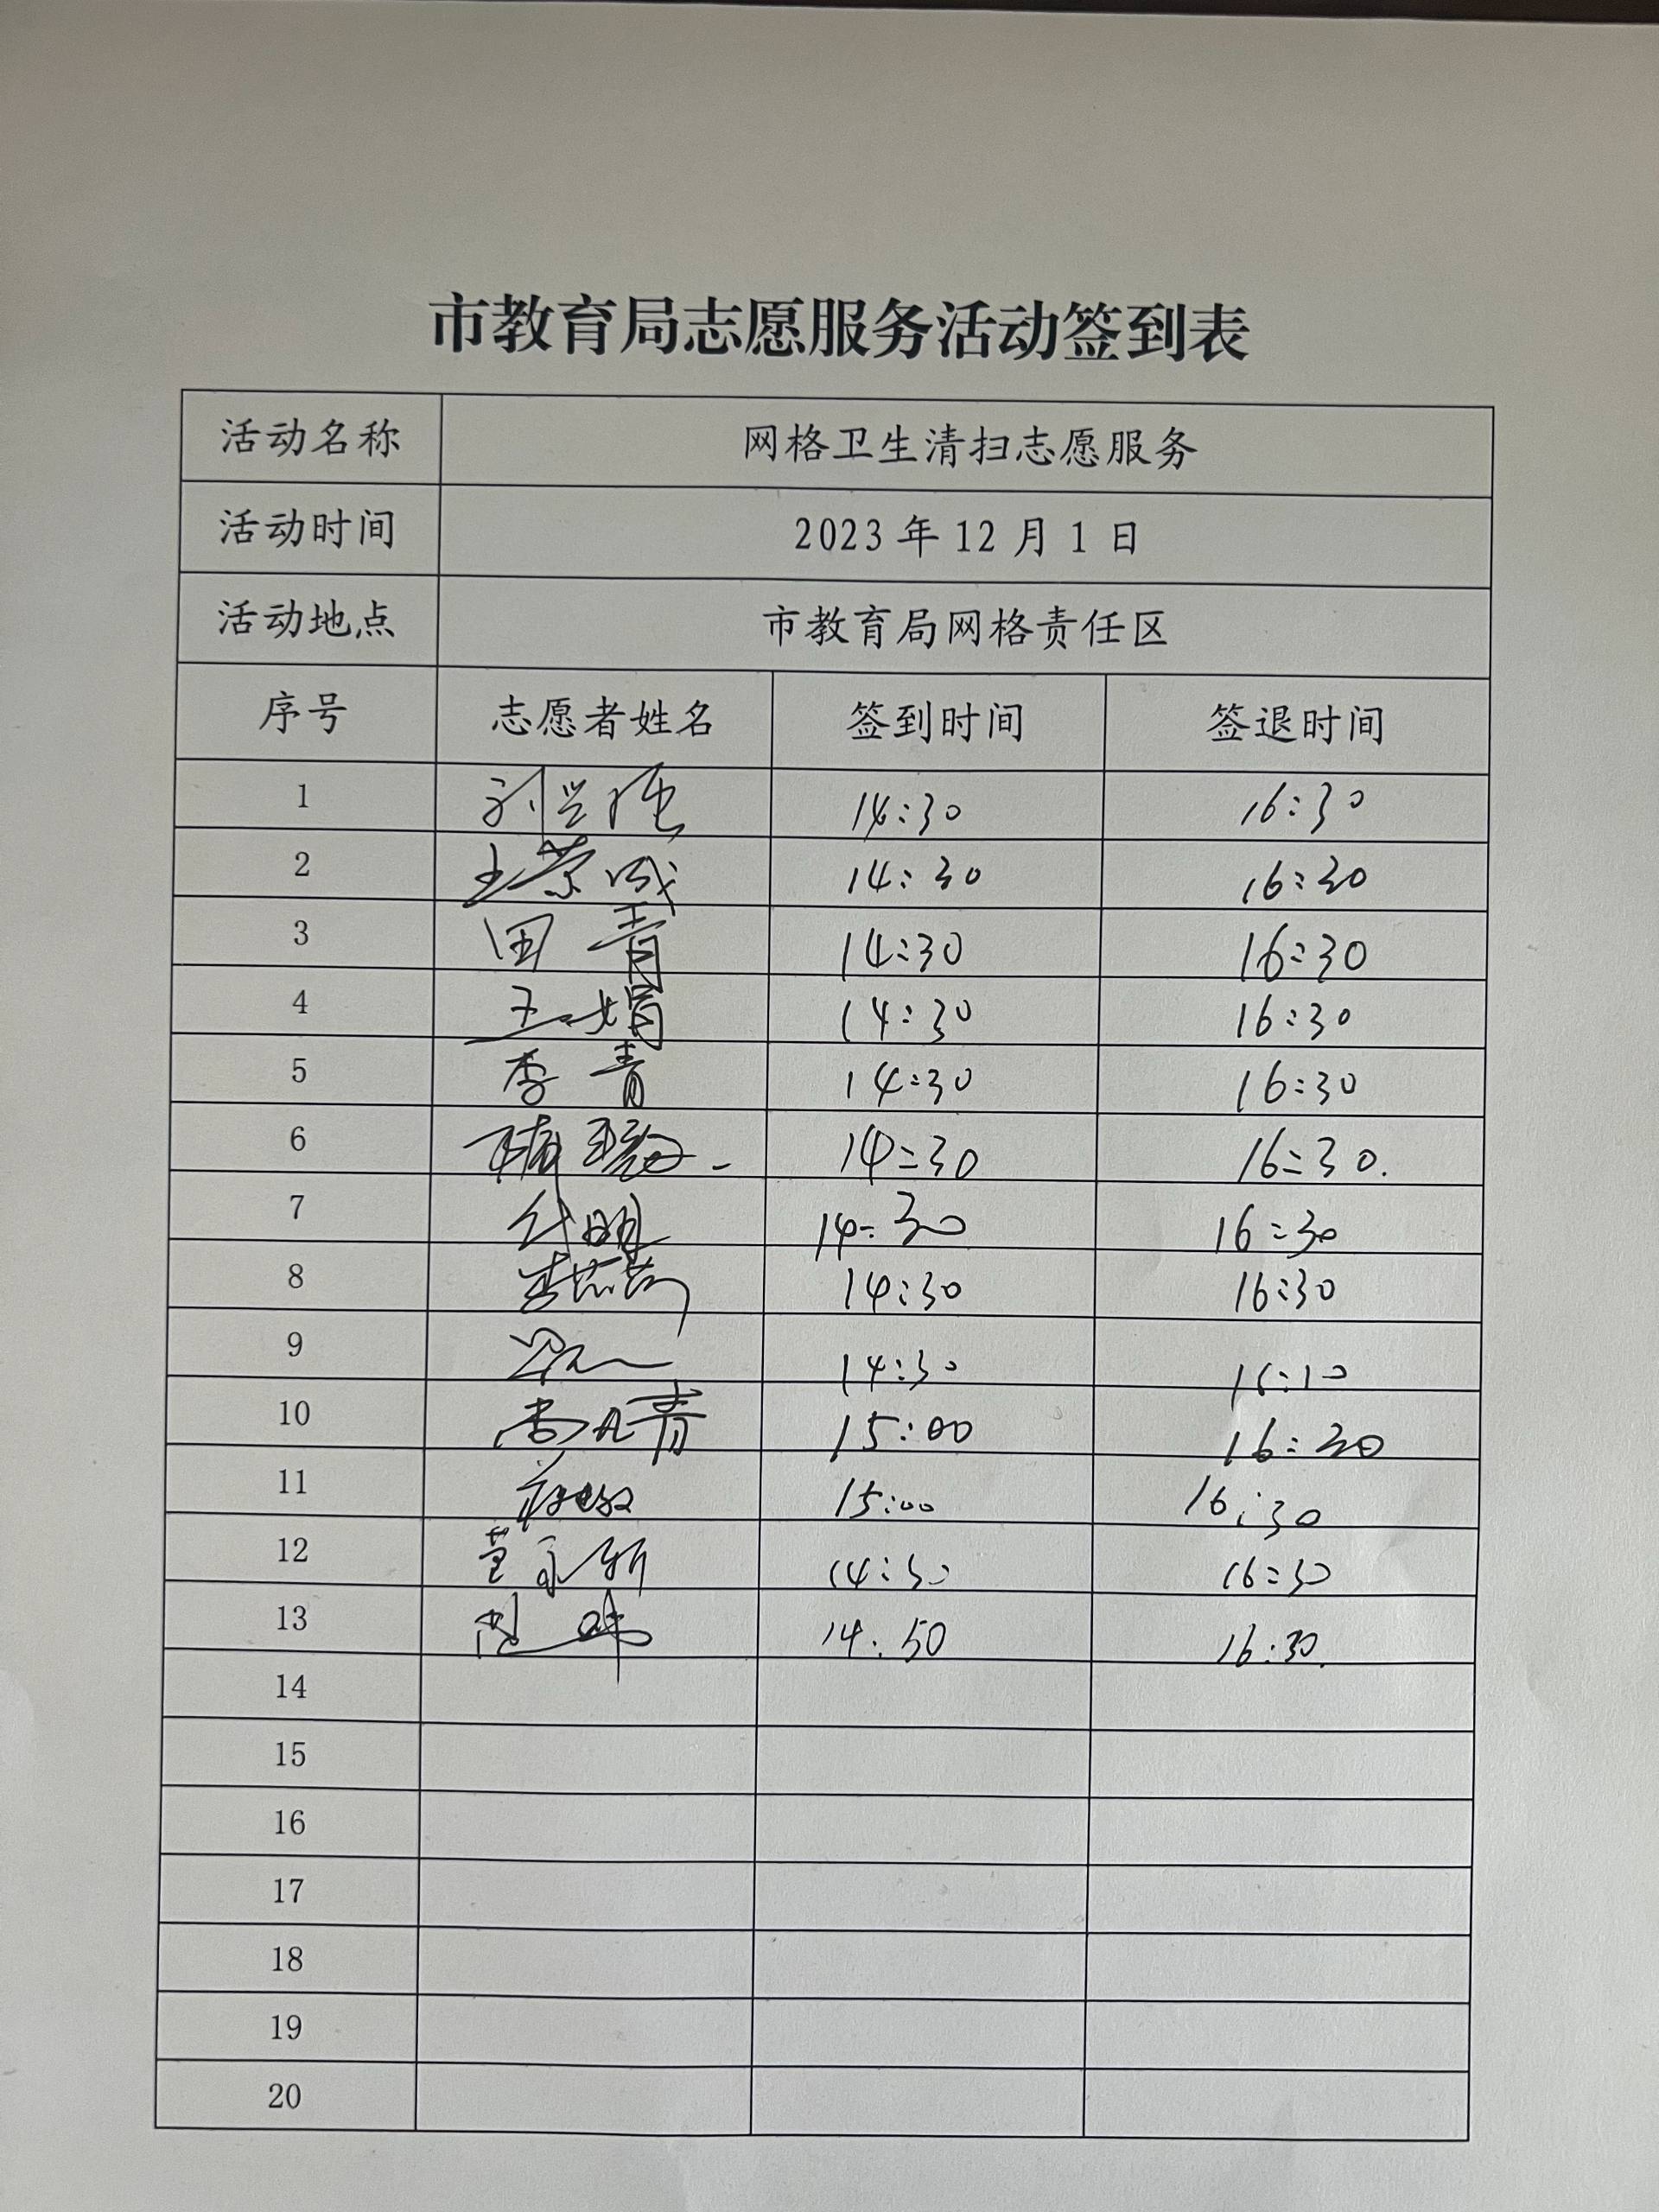 市教育局志愿服务活动签到表
活动名称 网格卫生清扫志愿服务
活动时间 2023年12月1日
活动地点 市教育局网格责任区
序号 志愿者姓名 签到时间 签退时间
1 14:30 16:30
2 14:30 16:30
3 田青 14:30 16:30
4 王娟 14:30 16:30
5 李青 14:30 16:30
6 14:30 16:30.
7 14:30 16:30
8 14:30 16:30
9 14:30
10 15:00 16:30
11 15:00 16:30
12 14:30 16:30
13 14:50 16:30.
14
15
16
17
18
19
20